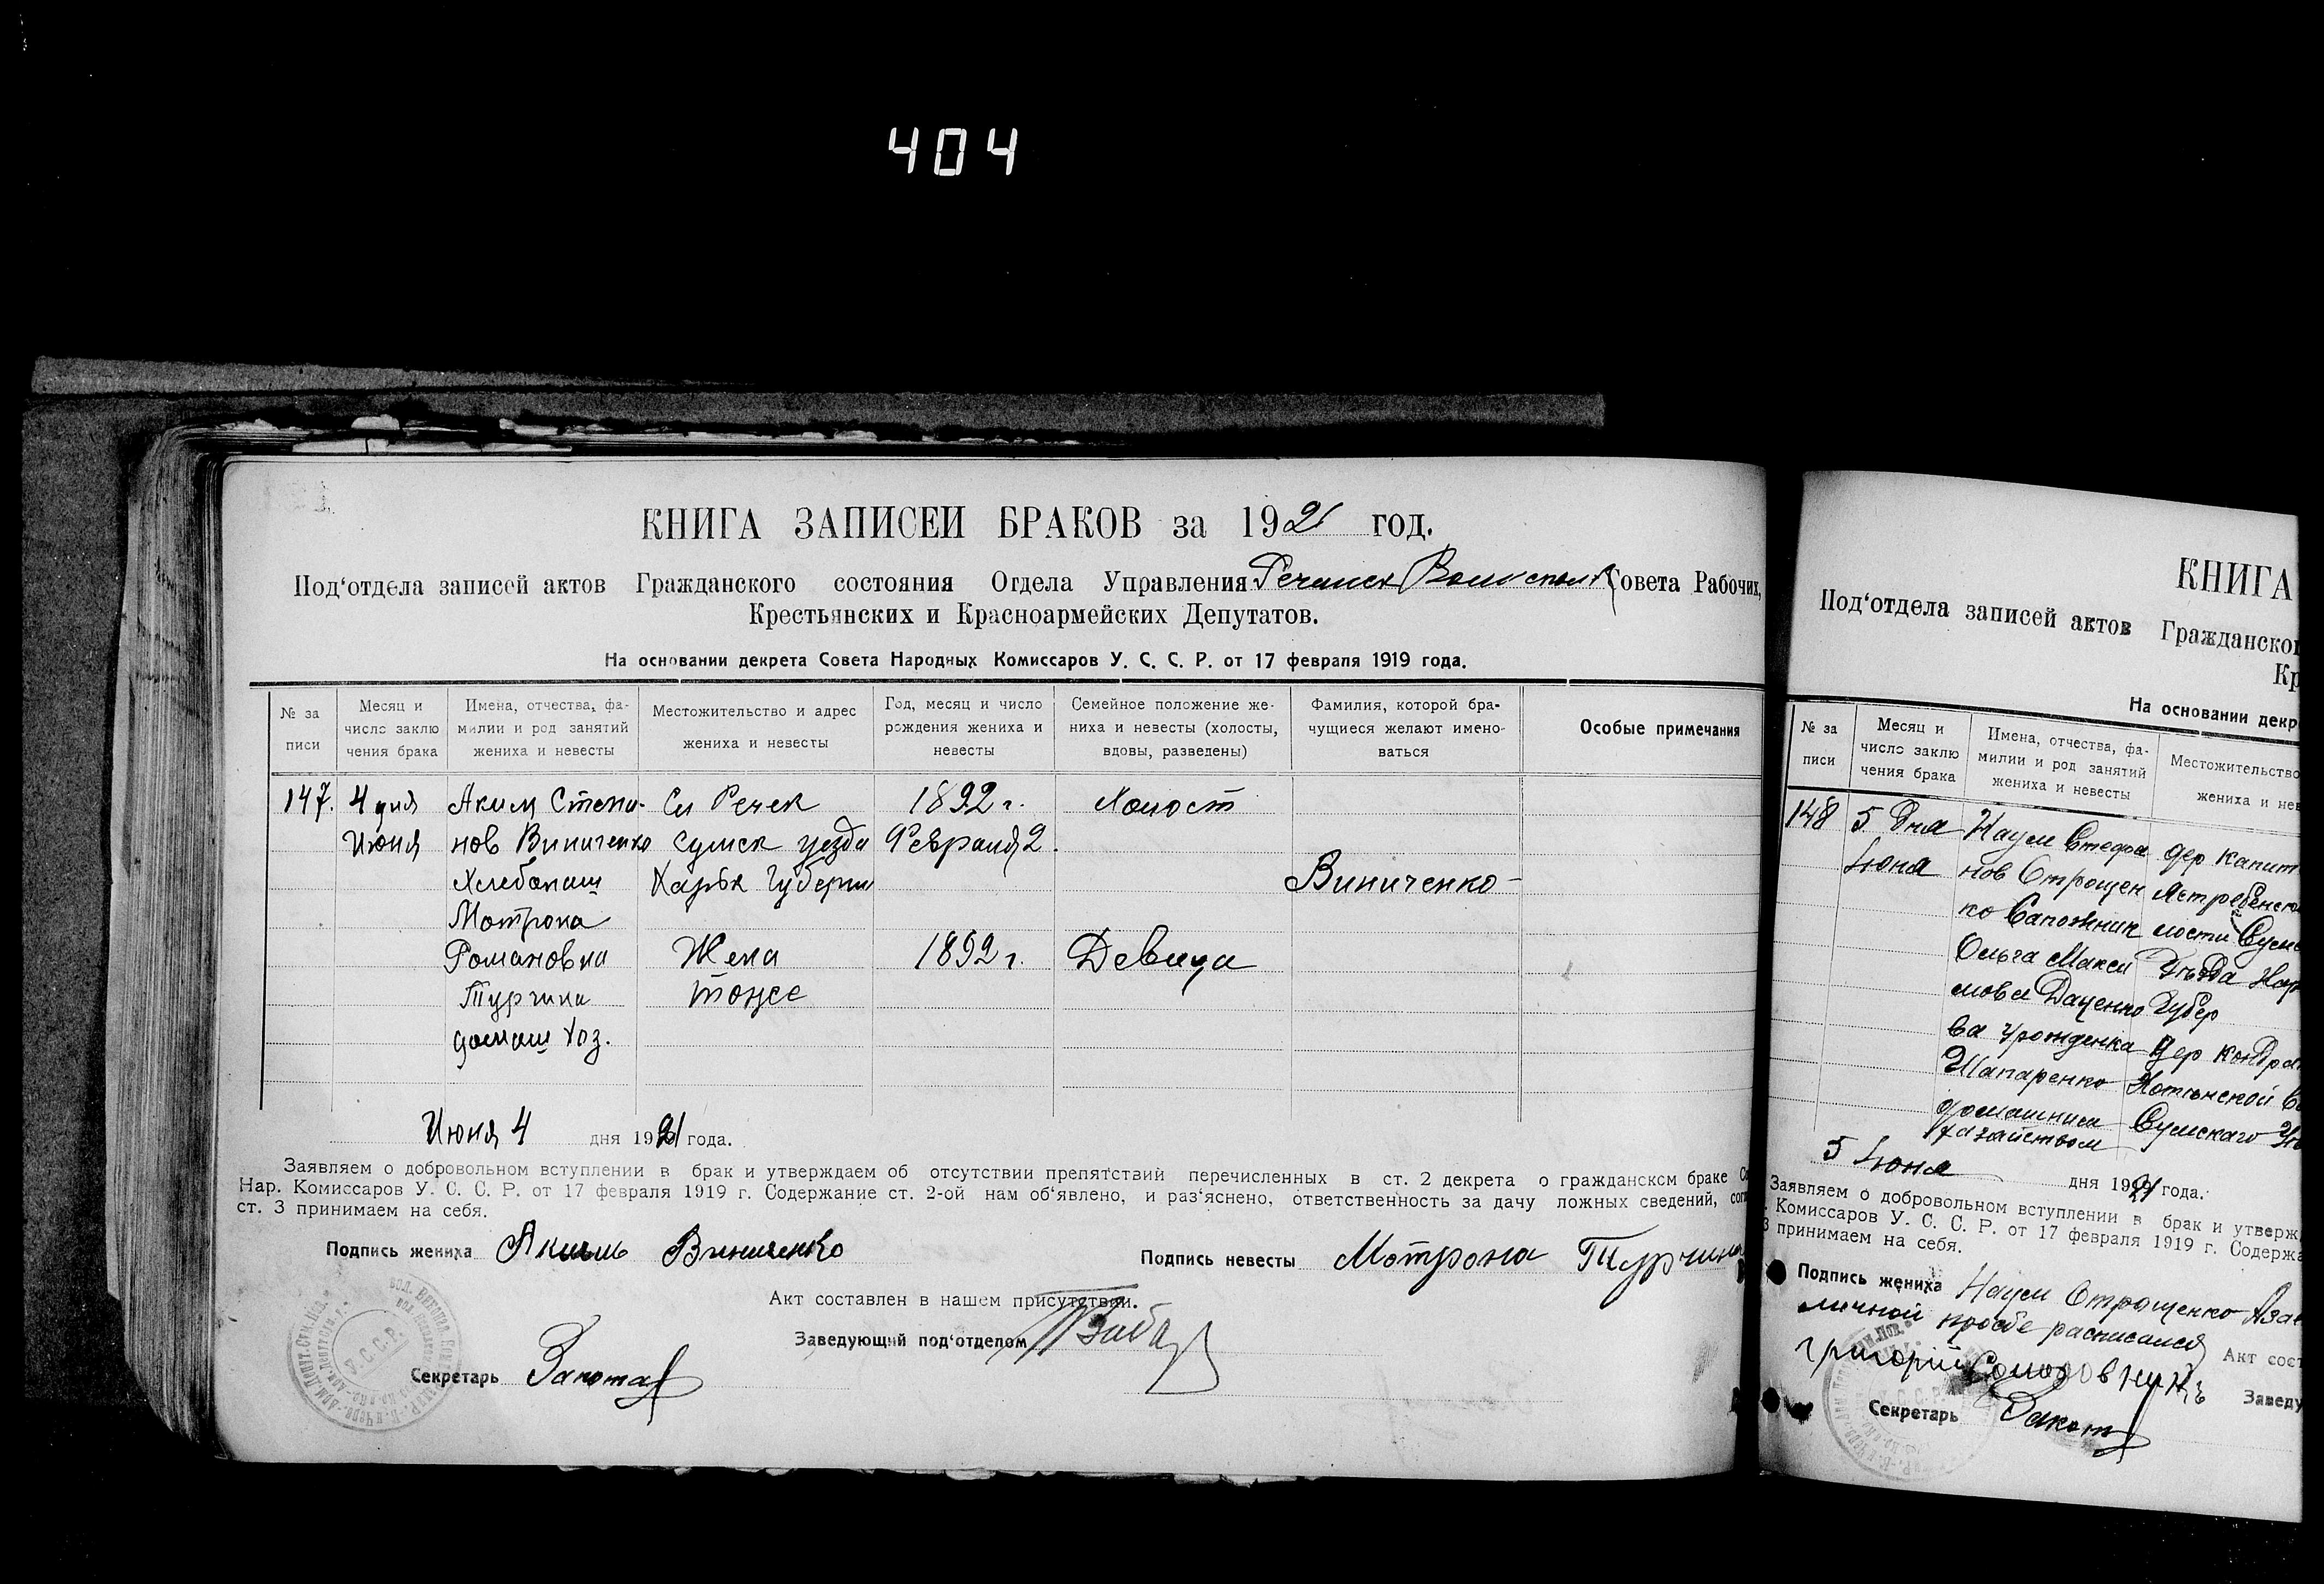 404
КНИГА ЗАПИСЕЙ БРАКОВ за 1921 год.
Под‘отдела записей актов Гражданского состояния Отдела Управления Речанск Волисполк Совета Рабочих,
Крестьянских и Красноармейских Депутатов.
На основании декрета Совета Народных Комиссаров У. С. С. Р. от 17 февраля 1919 года.
№ за писи
Месяц и число заклю чения брака
Имена, отчества, фа- милии и род занятий жениха и невесты
Местожительство и адрес жениха и невесты
Год, месяц и число рождения жениха и невесты
Семейное положение же- ниха и невесты (холосты, вдовы, разведены)
Фамилия, которой бра- чущиеся желают имено- ваться
Особые примечания
147. 4 дня Аким Степа- Сл Речек 1892 г. Холост
Июня нов Виниченко Сумск уезда Февраля 2.
Хлебопаш Харьк Губерни Виниченко
Мотрона
Романовна Жена 1892 г. Девица
Турчина тоже
домаш хоз.
Июня 4 дня 1921 года.
Заявляем о добровольном вступлении в брак и утверждаем об отсутствии препятствий перечисленных в ст. 2 декрета о гражданском браке
Нар. Комиссаров У. С. С. Р. от 17 февраля 1919 г. Содержание ст. 2-ой нам об‘явлено, и раз‘яснено, ответственность за дачу ложных сведений,
ст. 3 принимаем на себя.
Подпись жениха Акимъ Виниченко
Подпись невесты Мотрона Турчина
Акт составлен в нашем присутствии.
Заведующий под‘отделом
Секретарь
У.С.С.Р.
КНИГА
Под‘отдела записей актов Гражданско
Кр
На основании декр
№ за писи
Месяц и число заклю чения брака
Имена, отчества, фа- милии и род занятий жениха и невесты
Местожительство
жениха и нев
148 5 Дня Наум Стефа дер Капит
Июня нов Отрощен Ястребенск
ко Сапожник лости Сумс
Ольга Макси Уезда Хар
мовн Даценко Губер
ва урожденка дер Кондра
Шапаренко Хотенской
домашним Сумскаго
хазяйством
5 Июня дня 1921 года.
Заявляем о добровольном вступлении в брак и утверж
Комиссаров У. С. С. Р. от 17 февраля 1919 г. Содержа
3 принимаем на себя.
Подпись жениха Наум Отрощенко
личной просбе расписался
Акт сост
Григорий Солодовникъ
Заведу
Секретарь